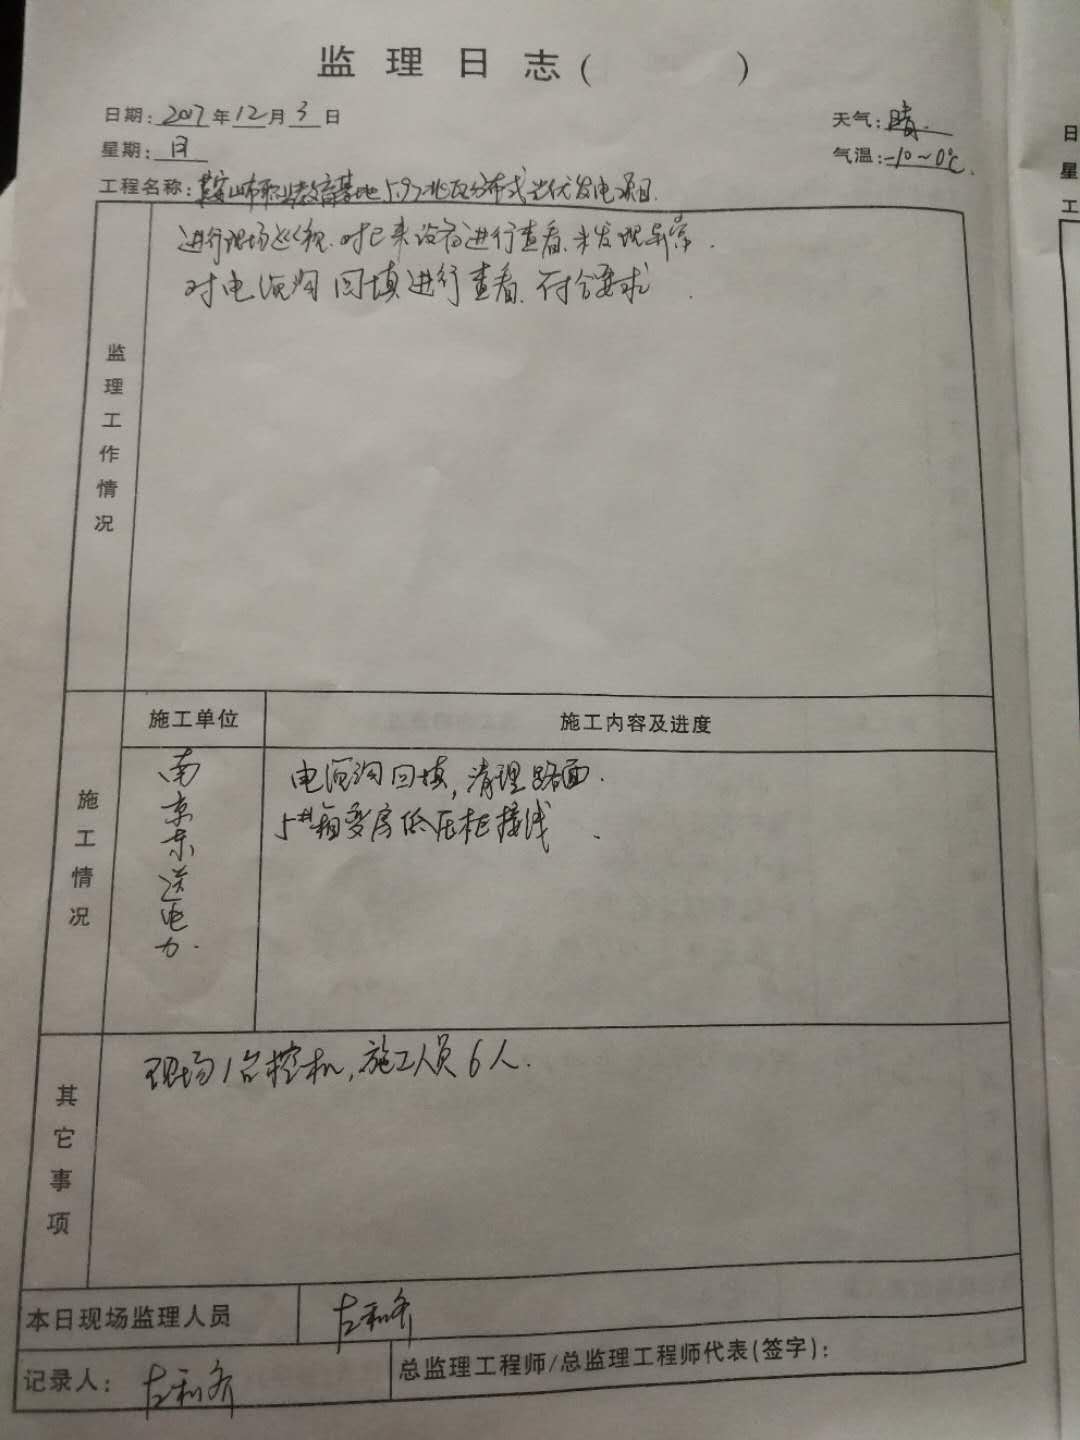 监理日志(　　)
日期: 2017年12月3日
天气: 晴.
星期: 日
气温: -10~0℃.
工程名称: 鞍山市职业教育基地5.97兆瓦分布式光伏发电项目.
监理工作情况
进行现场巡视.对已来设备进行查看.未发现异常.
对电缆沟回填进行查看.符合要求.
施工情况
施工单位
施工内容及进度
南京东送电力.
电缆沟回填,清理路面.
5#箱变房低压柜接线.
其它事项
现场1台挖机,施工人员6人.
本日现场监理人员
记录人:
总监理工程师/总监理工程师代表(签字):
日
星
工